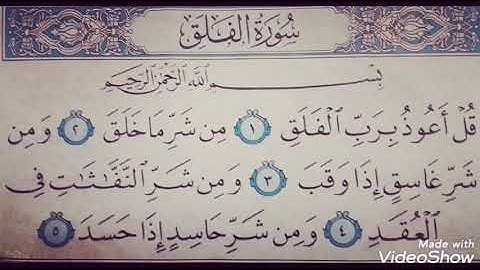 سُورَةُ الفَلَقِ
بِسْمِ اللَّهِ الرَّحْمَٰنِ الرَّحِيمِ
قُلْ أَعُوذُ بِرَبِّ ٱلْفَلَقِ ١ مِن شَرِّ مَا خَلَقَ ٢ وَمِن
شَرِّ غَاسِقٍ إِذَا وَقَبَ ٣ وَمِن شَرِّ ٱلنَّفَّٰثَٰتِ فِي
ٱلْعُقَدِ ٤ وَمِن شَرِّ حَاسِدٍ إِذَا حَسَدَ ٥
Made with
VideoShow